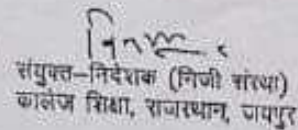 संयुक्त-निदेशक (निजी संस्था)
कॉलेज शिक्षा, राजस्थान, जयपुर